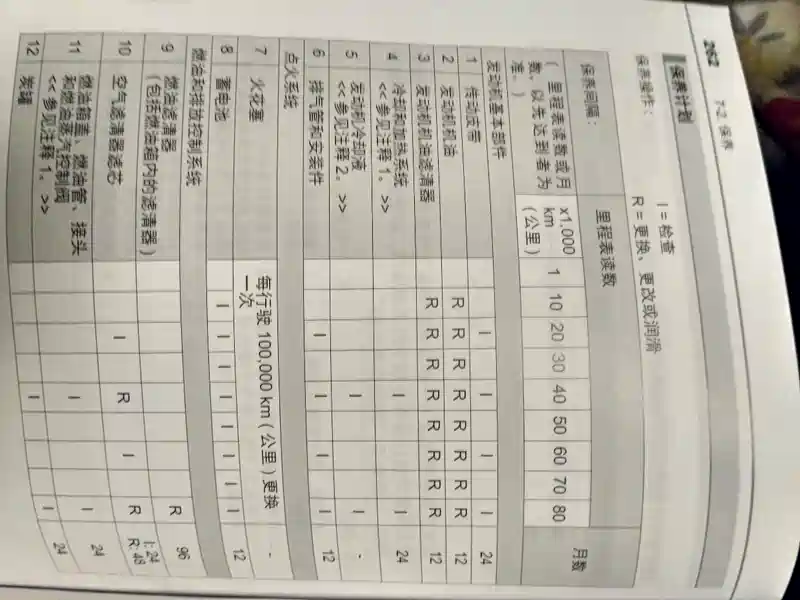 262 7-2. 保养
保养计划
保养操作： I = 检查
R = 更换、更改或润滑
保养间隔： 里程表读数 月数
（里程表读数或月数，以先达到者为准。） x1,000 km（公里） 1 10 20 30 40 50 60 70 80
发动机基本部件
1 传动皮带 I I I I 24
2 发动机机油 R R R R R R R R 12
3 发动机机油滤清器 R R R R R R R R 12
4 冷却和加热系统
<< 参见注释 1。 >> I I 24
5 发动机冷却液
<< 参见注释 2。 >> I I -
6 排气管和安装件 I I I I 12
点火系统
7 火花塞 每行驶 100,000 km（公里）更换
一次 -
8 蓄电池 I I I I I I I I 12
燃油和排放控制系统
9 燃油滤清器
（包括燃油箱内的滤清器） R 96
10 空气滤清器滤芯 I R I R I: 24
R: 48
11 燃油箱盖、燃油管、接头
和燃油蒸气控制阀
<< 参见注释 1。 >> I I 24
12 炭罐 I I 24